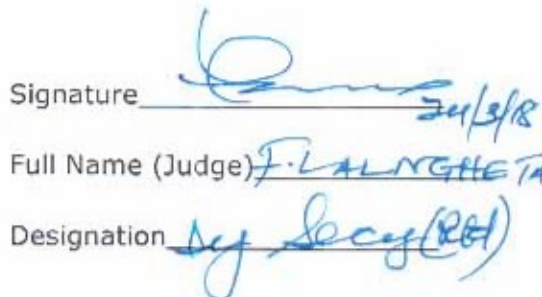 Signature
24/3/18
Full Name (Judge) F. LALNGHETA
Designation Dy Secy